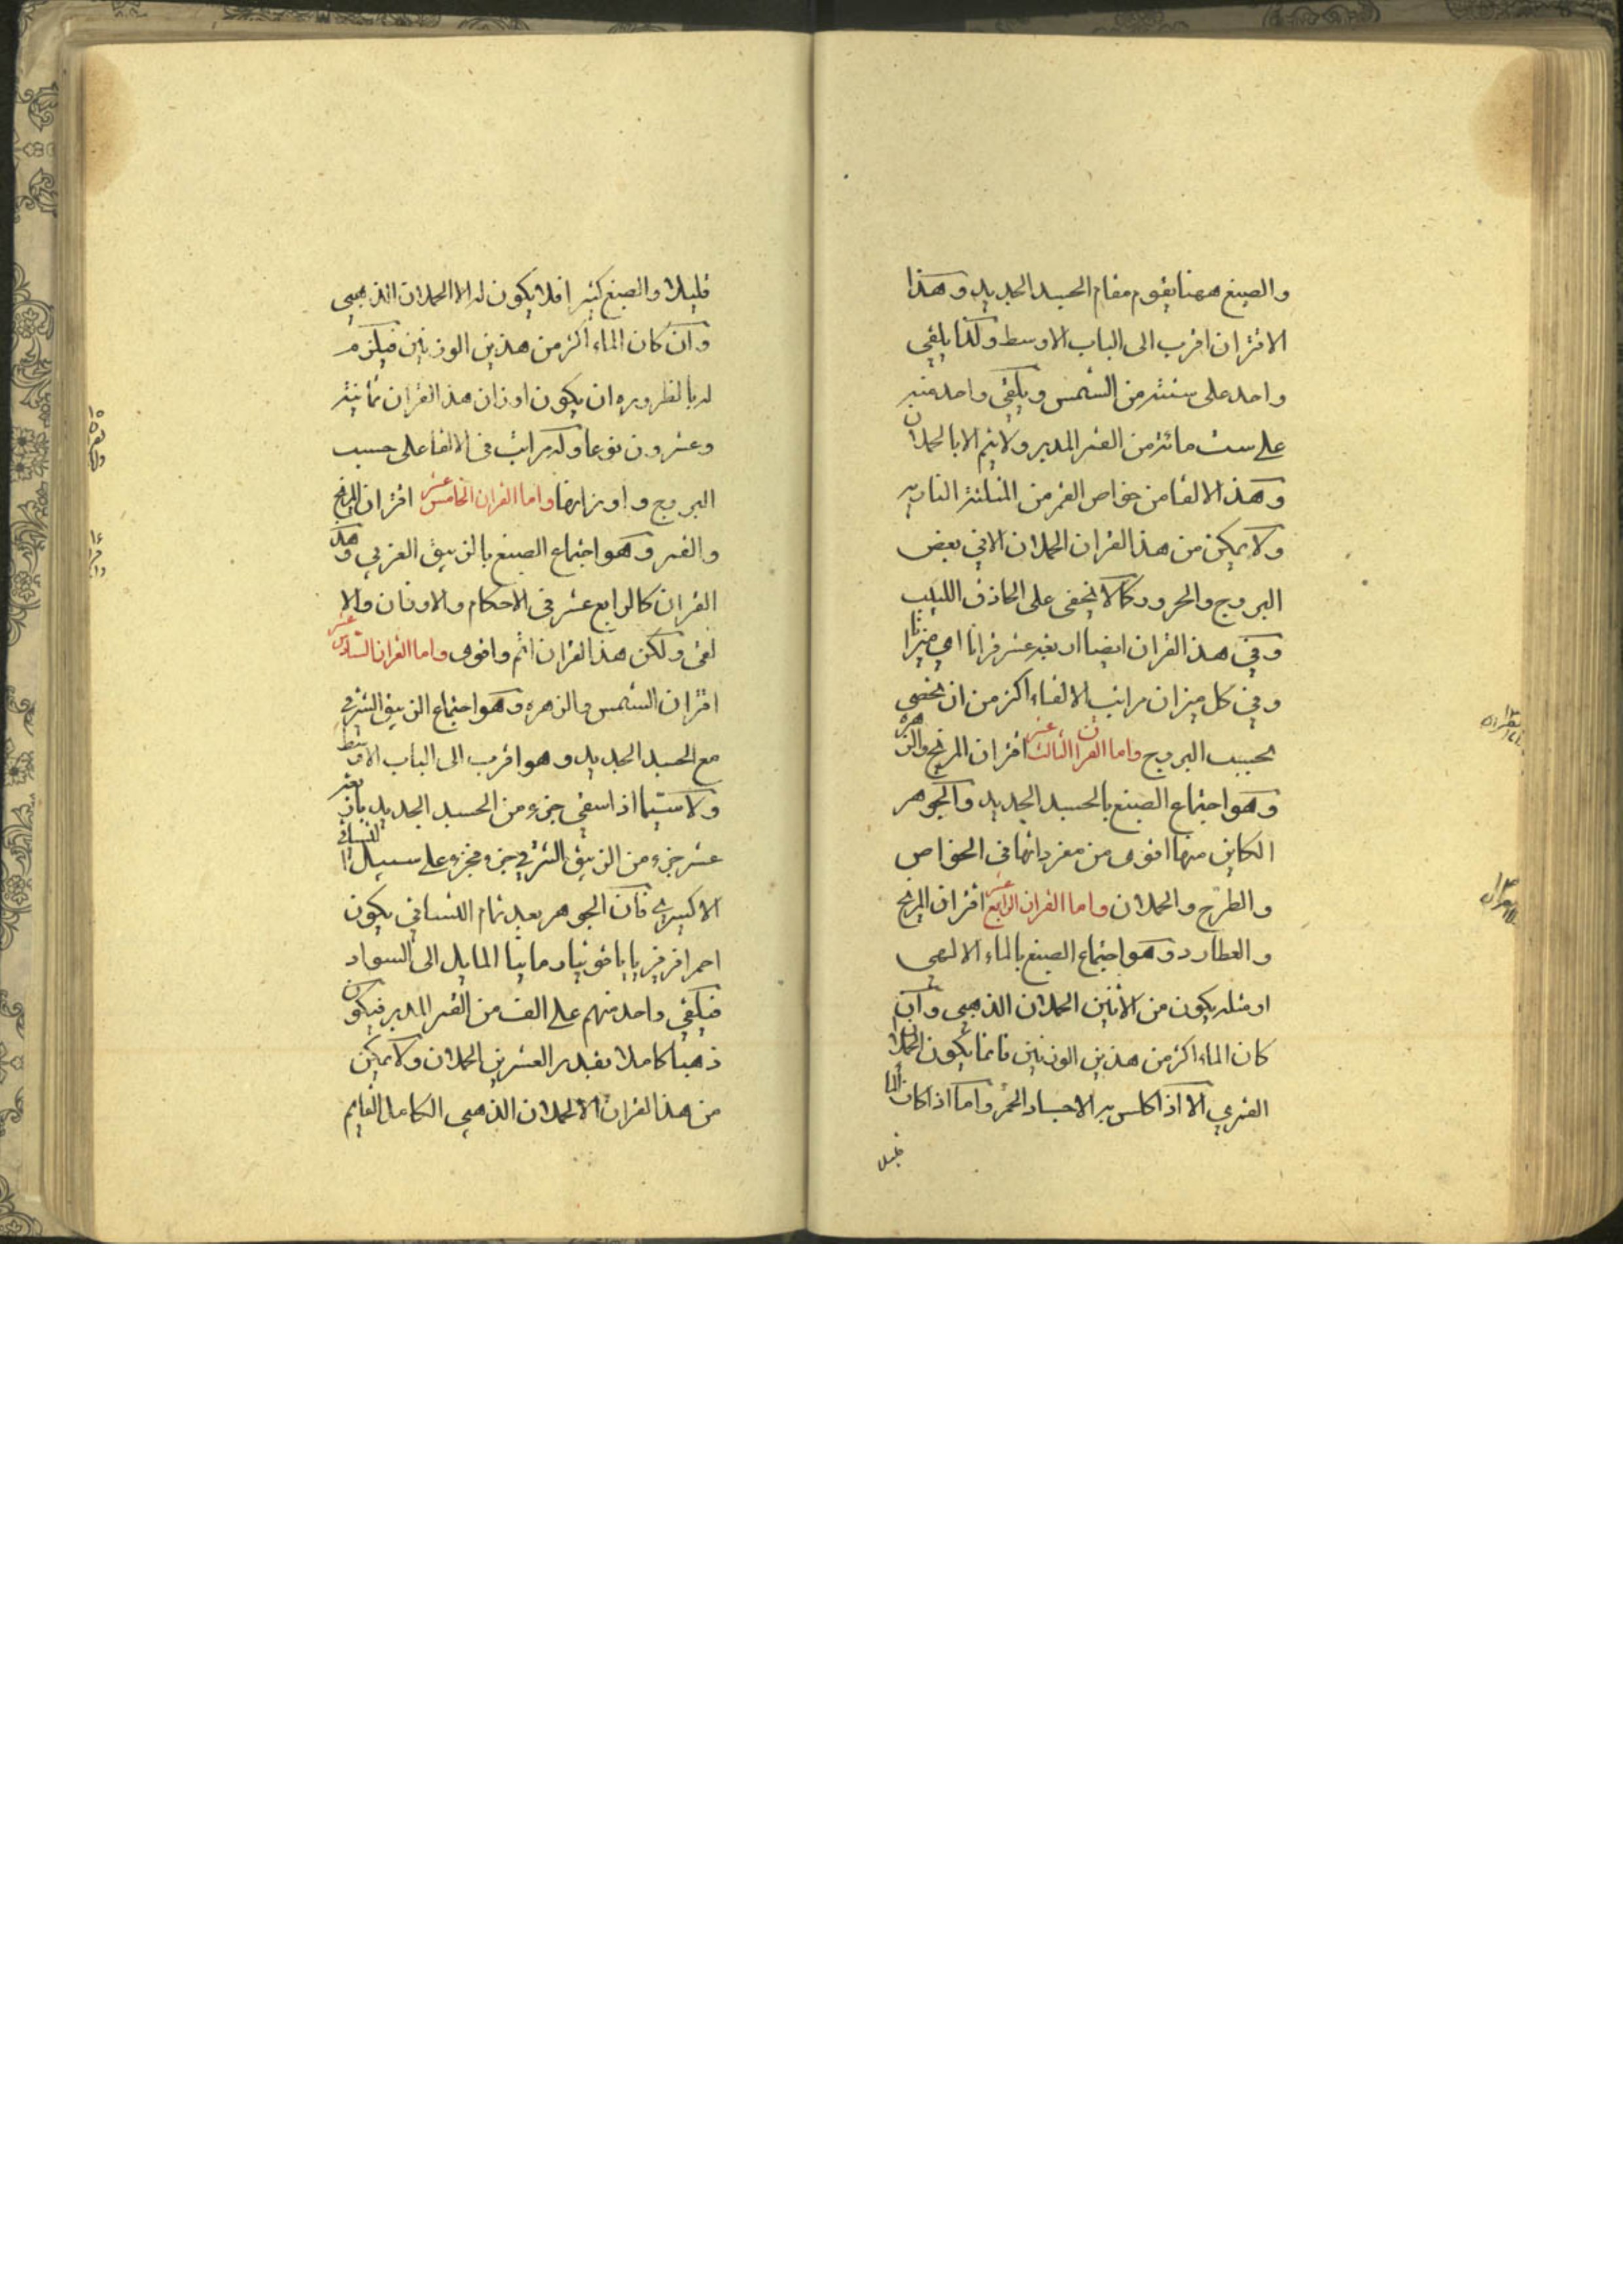 والصبغ ههنا يقوم مقام الجسد الجديد وهذا
الاقتران اقرب الى الباب الاوسط ولكنا يلقى
واحد على ستة من الشمس ويلقى واحد منه
على ست مائة من القمر المدبر ولا يتم الا بالحملان
وهذا الالقا من خواص القمر من المثلثة النارية
ولا يمكن من هذا القران الحملان الا فى بعض
البروج والحدود كما لا يخفى على الحاذق اللبيب
وفى هذا القران ايضا اربعة عشر قرانا اى ميزانا
وفى كل ميزان مراتب الالقاء اكثر من ان يحصى
بحسب البروج واما القران الثالث عشر اقتران المريخ والزهرة
وهو اجتماع الصبغ بالجسد الجديد والجوهر
الكاين منها اقوى من مفرداتها فى الخواص
والطرح والحملان واما القران الرابع عشر اقتران المريخ
والعطارد وهو اجتماع الصبغ بالماء الالهى
او مثله يكون من الاثنين الحملان الذهبى وان
كان الماء اكثر من هذين الوزنين فانما يكون الحملان
القمرى الا اذا كلس به الاجساد الحمر واما اذا كان الما
قليل
قليلا والصبغ كثيرا فلا يكون له الا الحملان الذهبى
وان كان الماء اكثر من هذين الوزنين فيلزم
له بالظروره ان يكون اوزان هذا القران ثمانية
وعشرون نوعا وله مراتب فى الالقا على حسب
البروج واوزانها واما القران الخامس عشر اقتران المريخ
والقمر وهو اجتماع الصبغ بالزيبق الغربى وهذا
القران كالرابع عشر فى الاحكام والاوزان والا
لقى ولكن هذا القران اتم واقوى واما القران السادس عشر
اقتران الشمس والزهره وهو اجتماع الزيبق الشرقى
مع الجسد الجديد وهو اقرب الى الباب الاوسط
ولا سيما اذا سقى جزء من الجسد الجديد باربعة
عشر جزء من الزيبق الشرقى جزء فجزء على سبيل التساقى
الاكسيرى فان الجوهر بعد تمام التساقى يكون
احمرا فرفيريا ياقوتيا رمانيا المايل الى السواد
فيلقى واحد منهم على الف من القمر المدبر فيكون
ذهبا كاملا بقدر العشرين الحملان ولا يمكن
من هذا القران الا الحملان الذهبى الكامل القايم